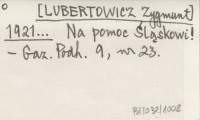 [LUBERTOWICZ Zygmunt]
1921... Na pomoc Śląskowi!
- Gaz. Podh. 9, nr 23.